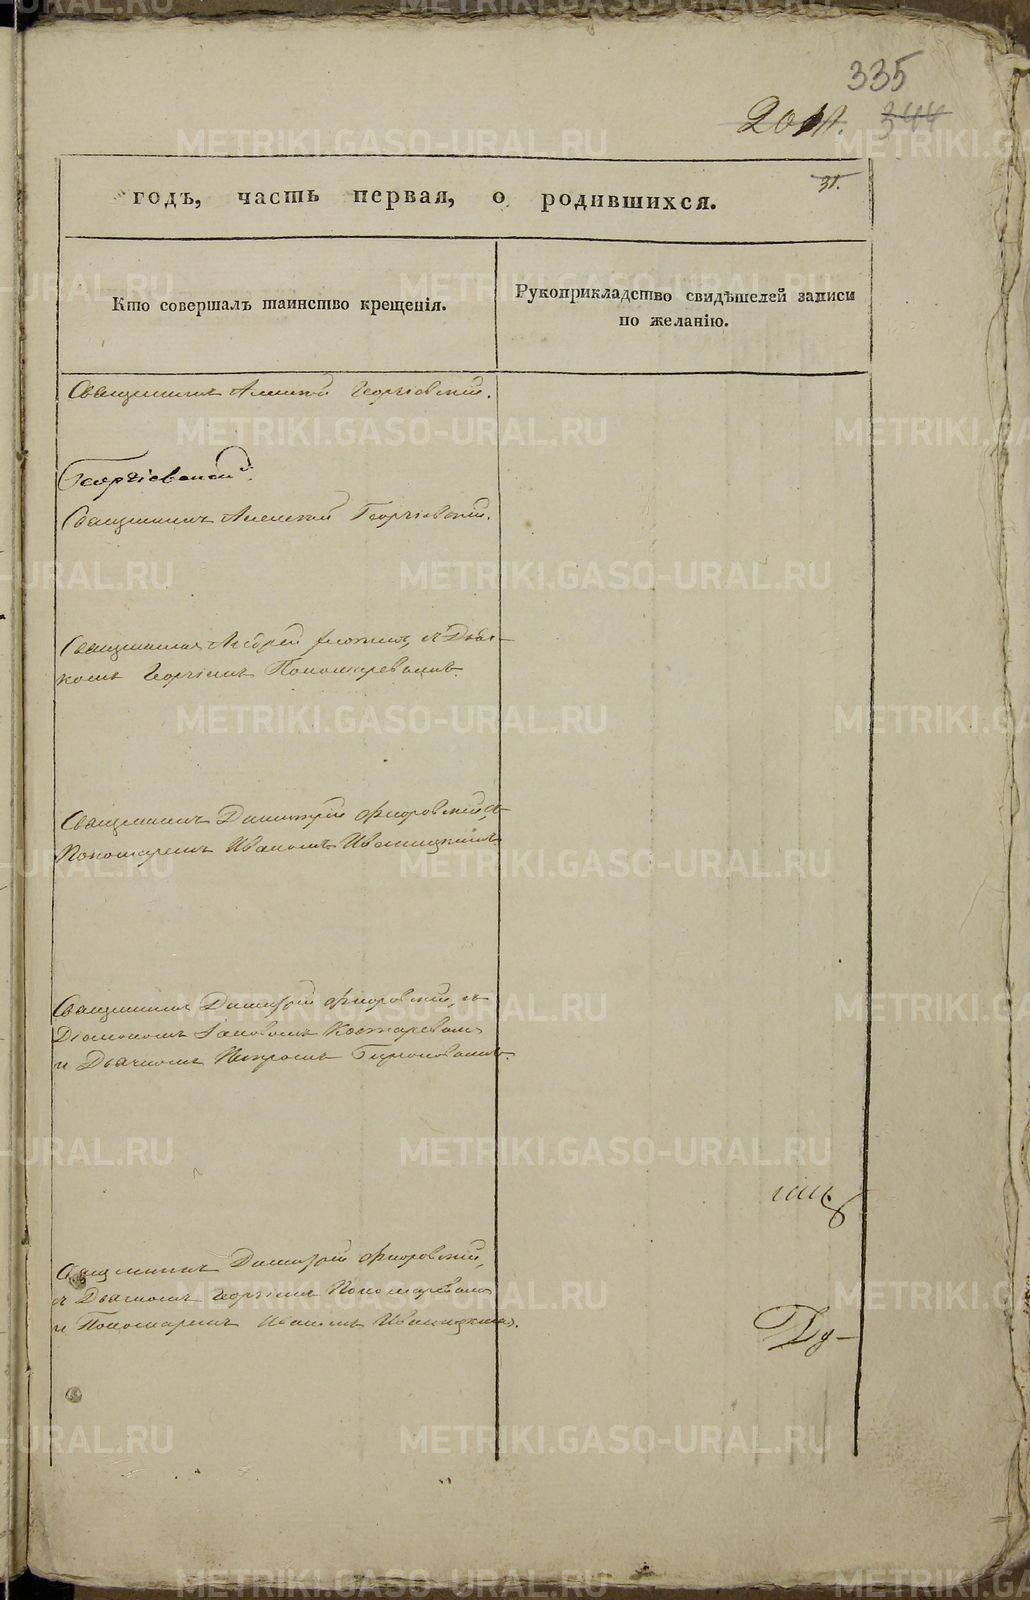 335
344
31.
годъ, часть первая, о родившихся.
Кто совершалъ таинство крещенія.
Рукоприкладство свидѣтелей записи
по желанію.
Священникъ Алексей Георгіевскій.
Георгіевский.
Священникъ Алексей Георгіевский.
Священникъ Андрей съ Дьяч-
комъ Георгіемъ Пономаревымъ.
Священникъ Димитрій Флоровский, съ
Пономаремъ Иваномъ Ивановскимъ
Священникъ Димитрій Флоровский, съ
Діакономъ Іаковомъ Костаревымъ
и Дьячкомъ Петромъ
Священникъ Димитрій Флоровский,
съ Дьячкомъ Георгіемъ Пономаревымъ
и Пономаремъ Иваномъ
METRIKI.GASO-URAL.RU